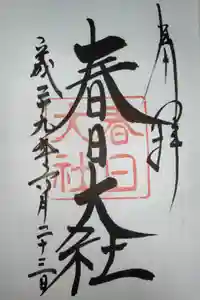 奉拝
春日大社
平成二十九年六月二十三日
春日
大社